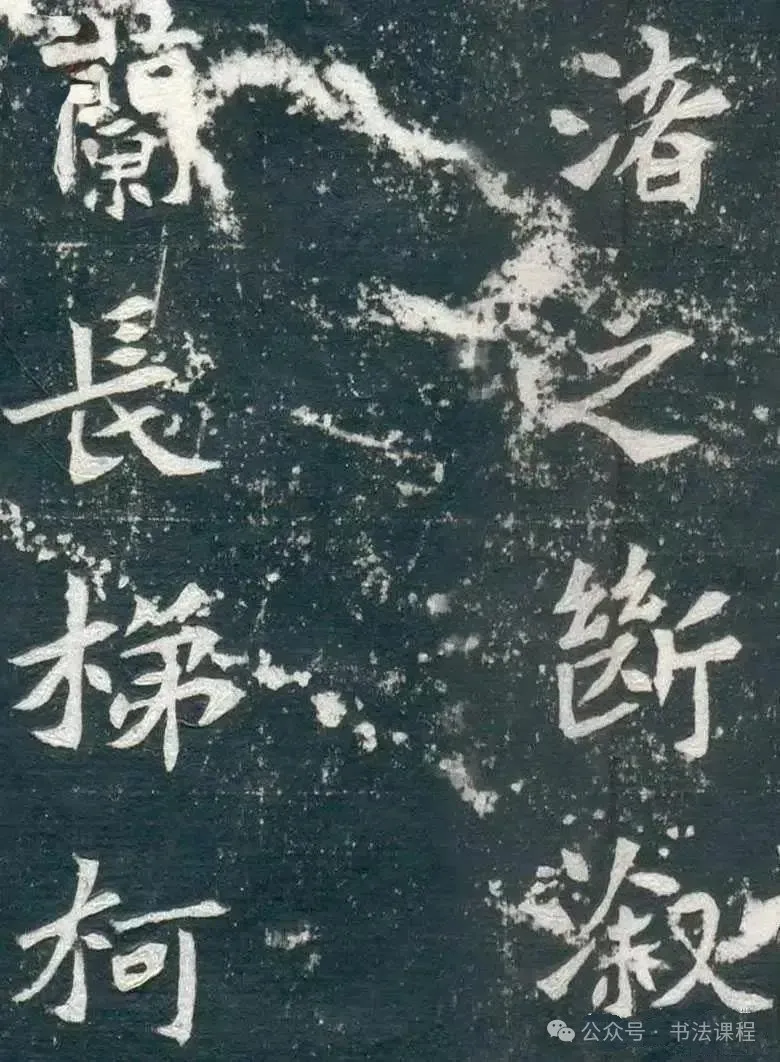 渚之斷溆
蘭長梯柯
公众号 · 书法课程